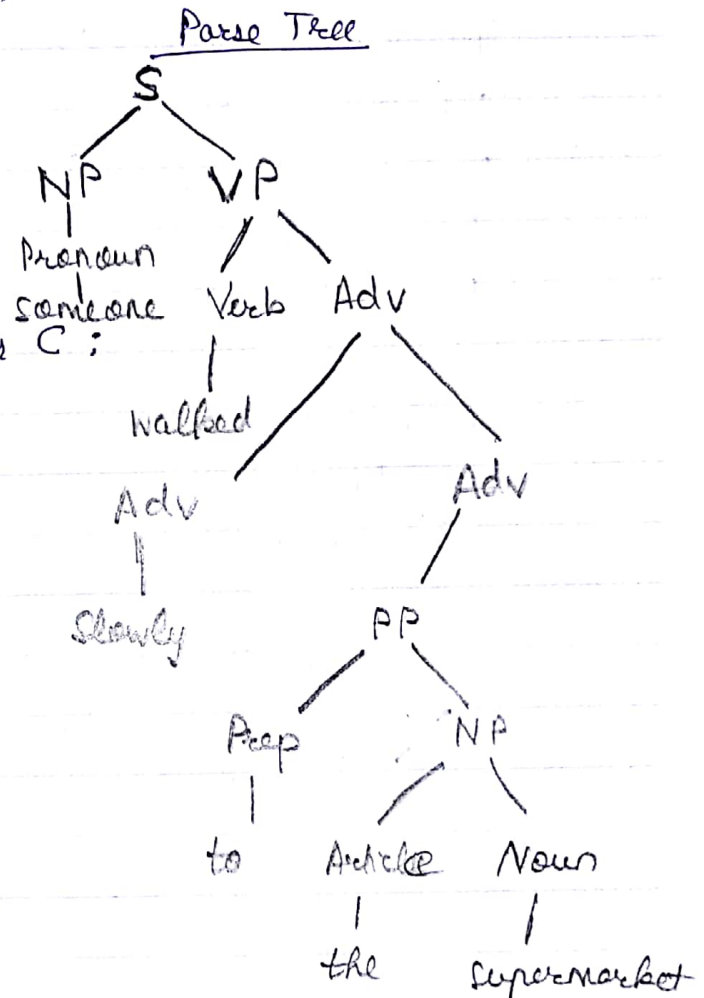 Parse Tree
S
NP VP
Pronoun
someone Verb Adv
C :
walked
Adv Adv
Slowly
PP
Prep NP
to Article Noun
the supermarket